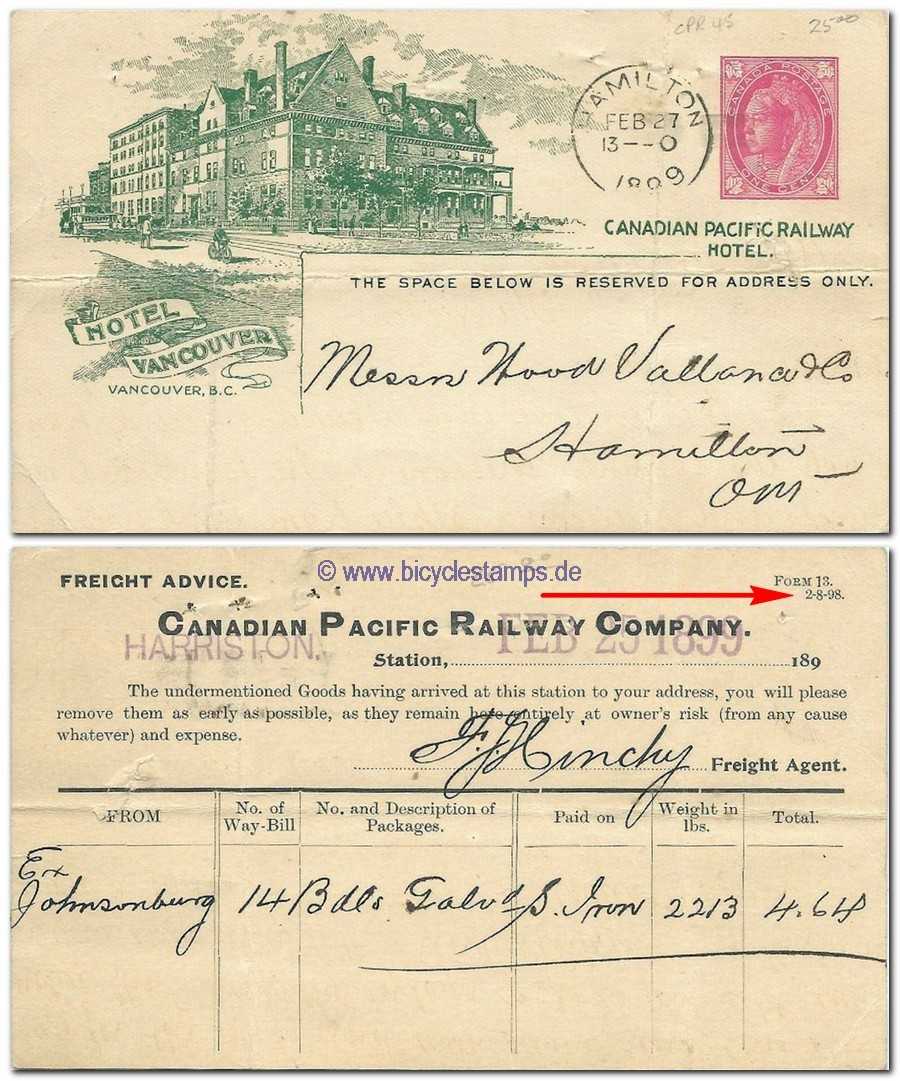 CPR 45 25.00
HAMILTON
FEB 27
13--O
1899
CANADA POSTAGE
ONE CENT
CANADIAN PACIFIC RAILWAY
HOTEL.
THE SPACE BELOW IS RESERVED FOR ADDRESS ONLY.
HOTEL
VANCOUVER
VANCOUVER, B.C.
Messrs Wood Vallance & Co
Hamilton
Ont
© www.bicyclestamps.de
FREIGHT ADVICE.
FORM 13.
2-8-98.
CANADIAN PACIFIC RAILWAY COMPANY.
HARRISTON. FEB 25 1899
Station, 189
The undermentioned Goods having arrived at this station to your address, you will please
remove them as early as possible, as they remain here entirely at owner's risk (from any cause
whatever) and expense.
F. J. Hinchy Freight Agent.
FROM No. of Way-Bill No. and Description of Packages. Paid on Weight in lbs. Total.
Ex
Johnsonburg 14 Bdls Galvd S. Iron 2213 4.64